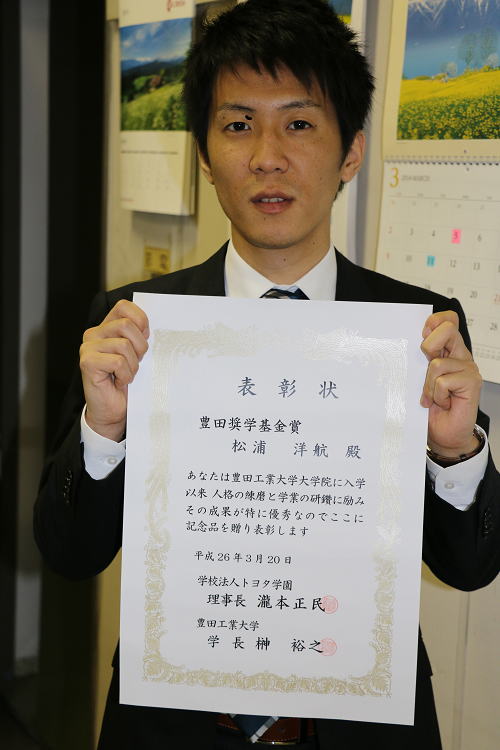 表彰状
豊田奨学基金賞
松浦 洋航 殿
あなたは豊田工業大学大学院に入学
以来 人格の練磨と学業の研鑽に励み
その成果が特に優秀なのでここに
記念品を贈り表彰します
平成26年3月20日
学校法人トヨタ学園
理事長 瀧本正民
豊田工業大学
学長 榊 裕之
3 2014 MARCH